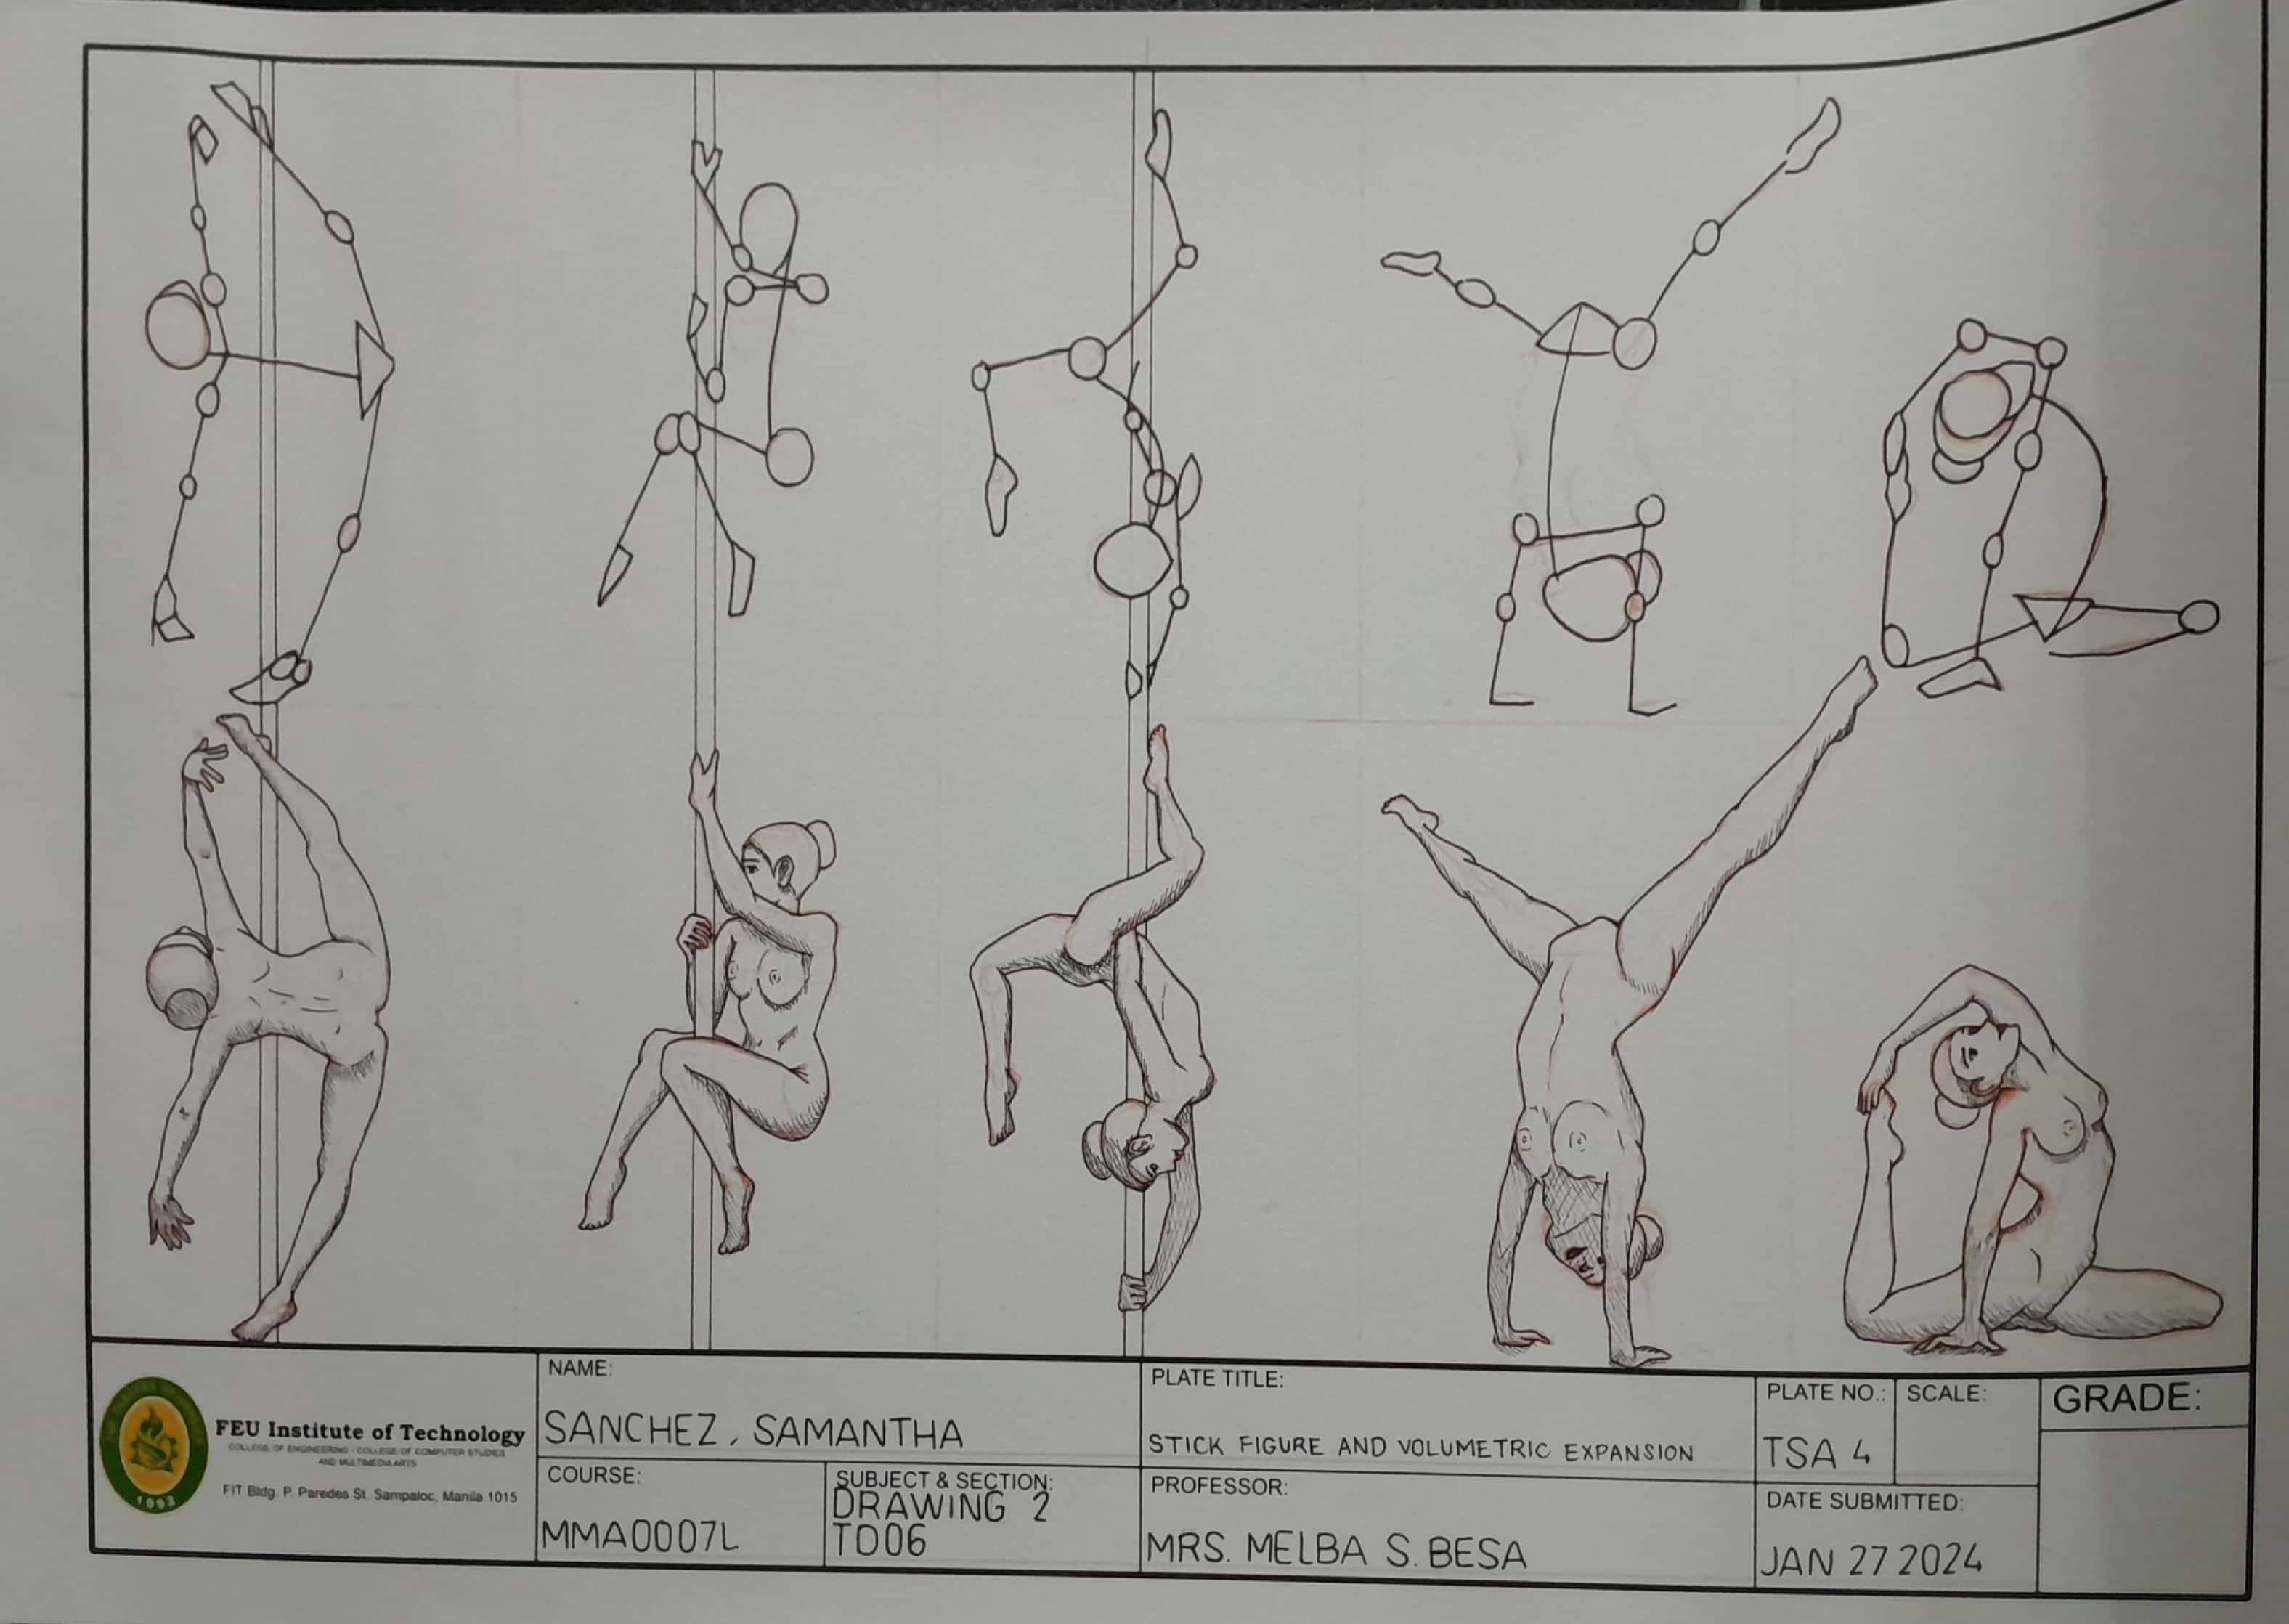 FEU Institute of Technology
COLLEGE OF ENGINEERING - COLLEGE OF COMPUTER STUDIES
AND MULTIMEDIA ARTS
FIT Bldg. P. Paredes St. Sampaloc, Manila 1015
1992
NAME:
SANCHEZ, SAMANTHA
COURSE:
MMA0007L
SUBJECT & SECTION:
DRAWING 2
TD06
PLATE TITLE:
STICK FIGURE AND VOLUMETRIC EXPANSION
PROFESSOR:
MRS. MELBA S. BESA
PLATE NO.:
TSA 4
SCALE:
DATE SUBMITTED:
JAN 27 2024
GRADE: